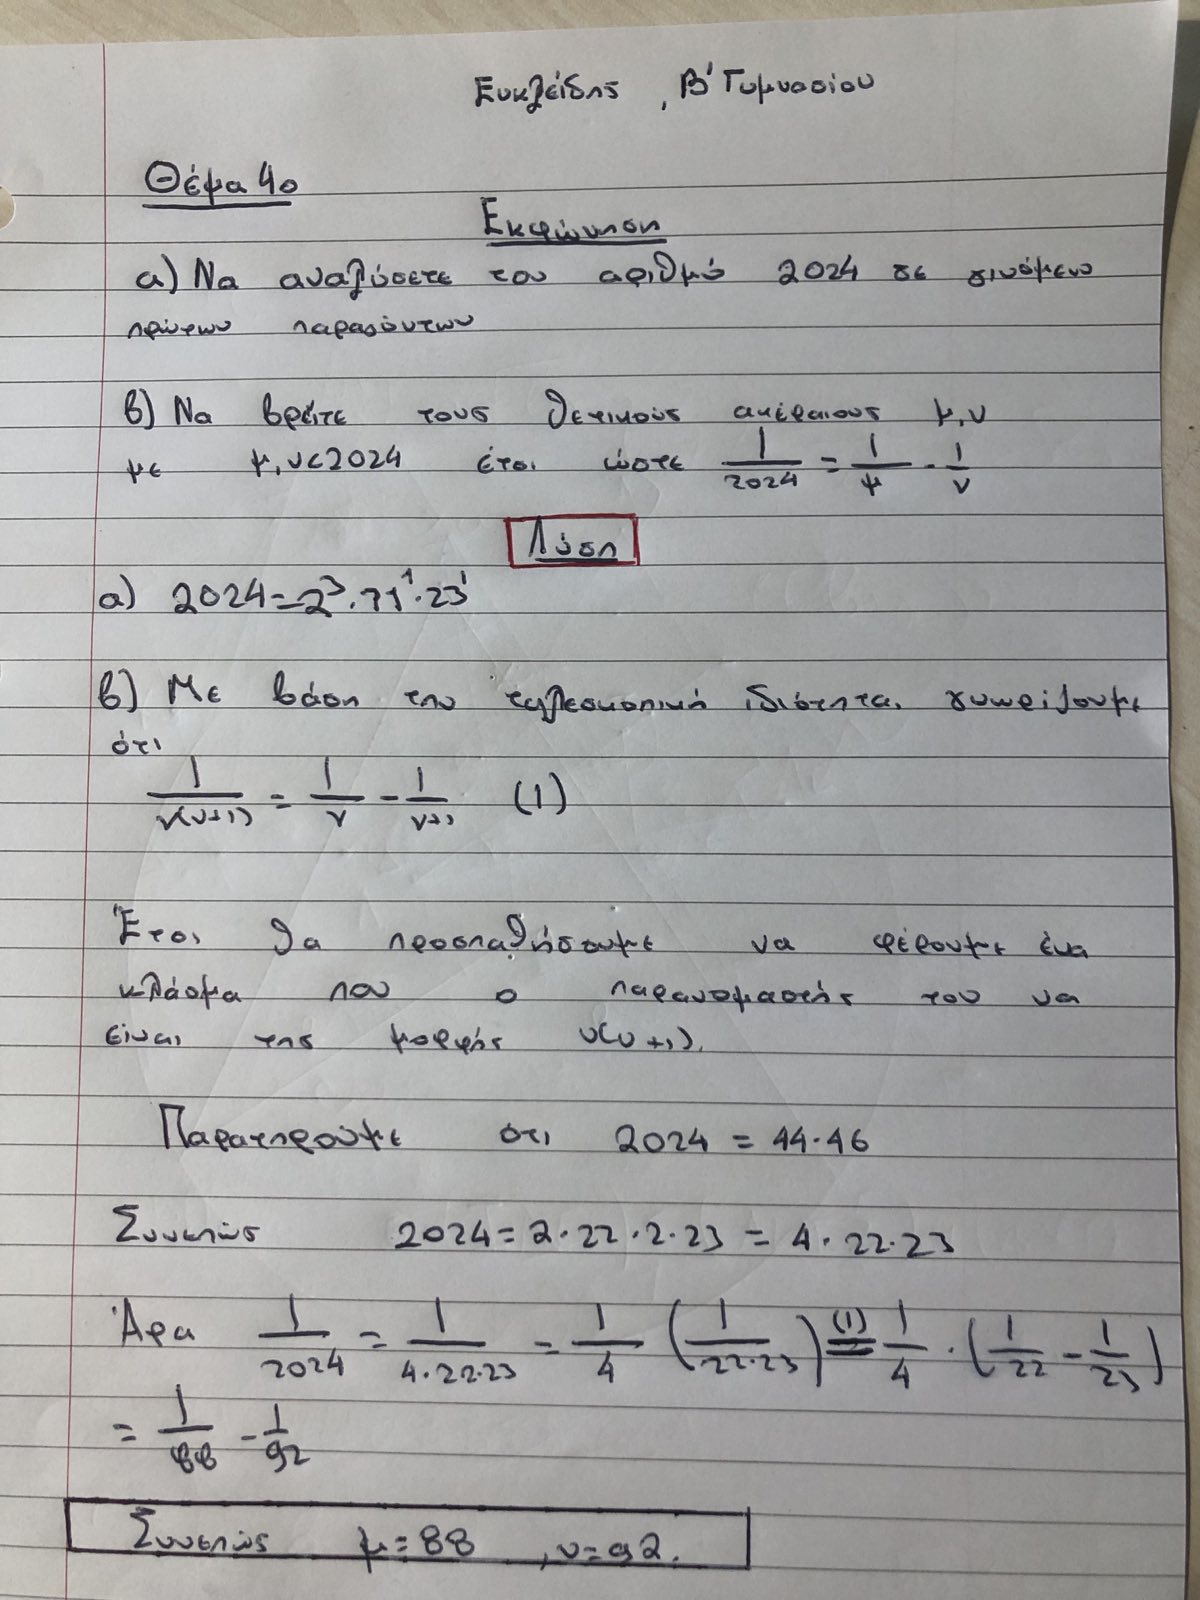 Ευκλείδης , Β' Γυμνασίου
Θέμα 4ο
Εκφώνηση
α) Να αναλύσετε τον αριθμό 2024 σε γινόμενο
πρώτων παραγόντων
β) Να βρείτε τους θετικούς ακέραιους μ,ν
με μ,ν<2024 έτσι ώστε 1/2024 = 1/μ - 1/ν
Λύση
α) 2024=2³·11¹·23¹
β) Με βάση την τηλεσκοπική ιδιότητα, γνωρίζουμε
ότι
1/ν(ν+1) = 1/ν - 1/ν+1 (1)
Έτσι θα προσπαθήσουμε να φέρουμε ένα
κλάσμα που ο παρανομαστής του να
είναι της μορφής ν(ν+1).
Παρατηρούμε ότι 2024 = 44·46
Συνεπώς 2024=2·22·2·23 = 4·22·23
Άρα 1/2024 = 1/4·22·23 = 1/4 (1/22·23) (1)= 1/4 · (1/22 - 1/23)
= 1/88 - 1/92
Συνεπώς μ=88 ,ν=92.